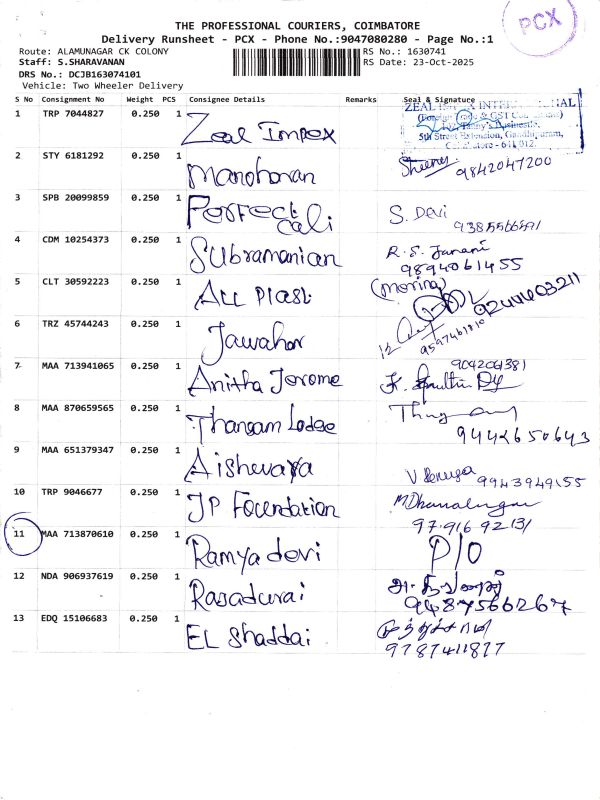 THE PROFESSIONAL COURIERS, COIMBATORE
PCX
Delivery Runsheet - PCX - Phone No.:9047080280 - Page No.:1
Route: ALAMUNAGAR CK COLONY
RS No.: 1630741
Staff: S.SHARAVANAN
RS Date: 23-Oct-2025
DRS No.: DCJB163074101
Vehicle: Two Wheeler Delivery
S No Consignment No Weight PCS Consignee Details Remarks Seal & Signature
1 TRP 7044827 0.250 1 Zeal Impex
ZEAL IMPEX INTERNATIONAL
5th Street Extension, Gandhipuram,
Coimbatore - 641 012.
2 STY 6181292 0.250 1 Manoharan 9842047200
3 SPB 20099859 0.250 1 Perfect cali S. Devi
4 CDM 10254373 0.250 1 Subramanian R.S. Janani
9894061455
5 CLT 30592223 0.250 1 All Plast
6 TRZ 45744243 0.250 1 Jawahar
7 MAA 713941065 0.250 1 Anitha Jerome
8 MAA 870659565 0.250 1 Thangam Lodge
9442650643
9 MAA 651379347 0.250 1 Aishwarya 9943949155
10 TRP 9046677 0.250 1 JP Foundation
97916 92131
11 MAA 713870610 0.250 1 Ramya devi P/O
12 NDA 906937619 0.250 1 Rasadurai
9487566267
13 EDQ 15106683 0.250 1 EL Shaddai
9787411877